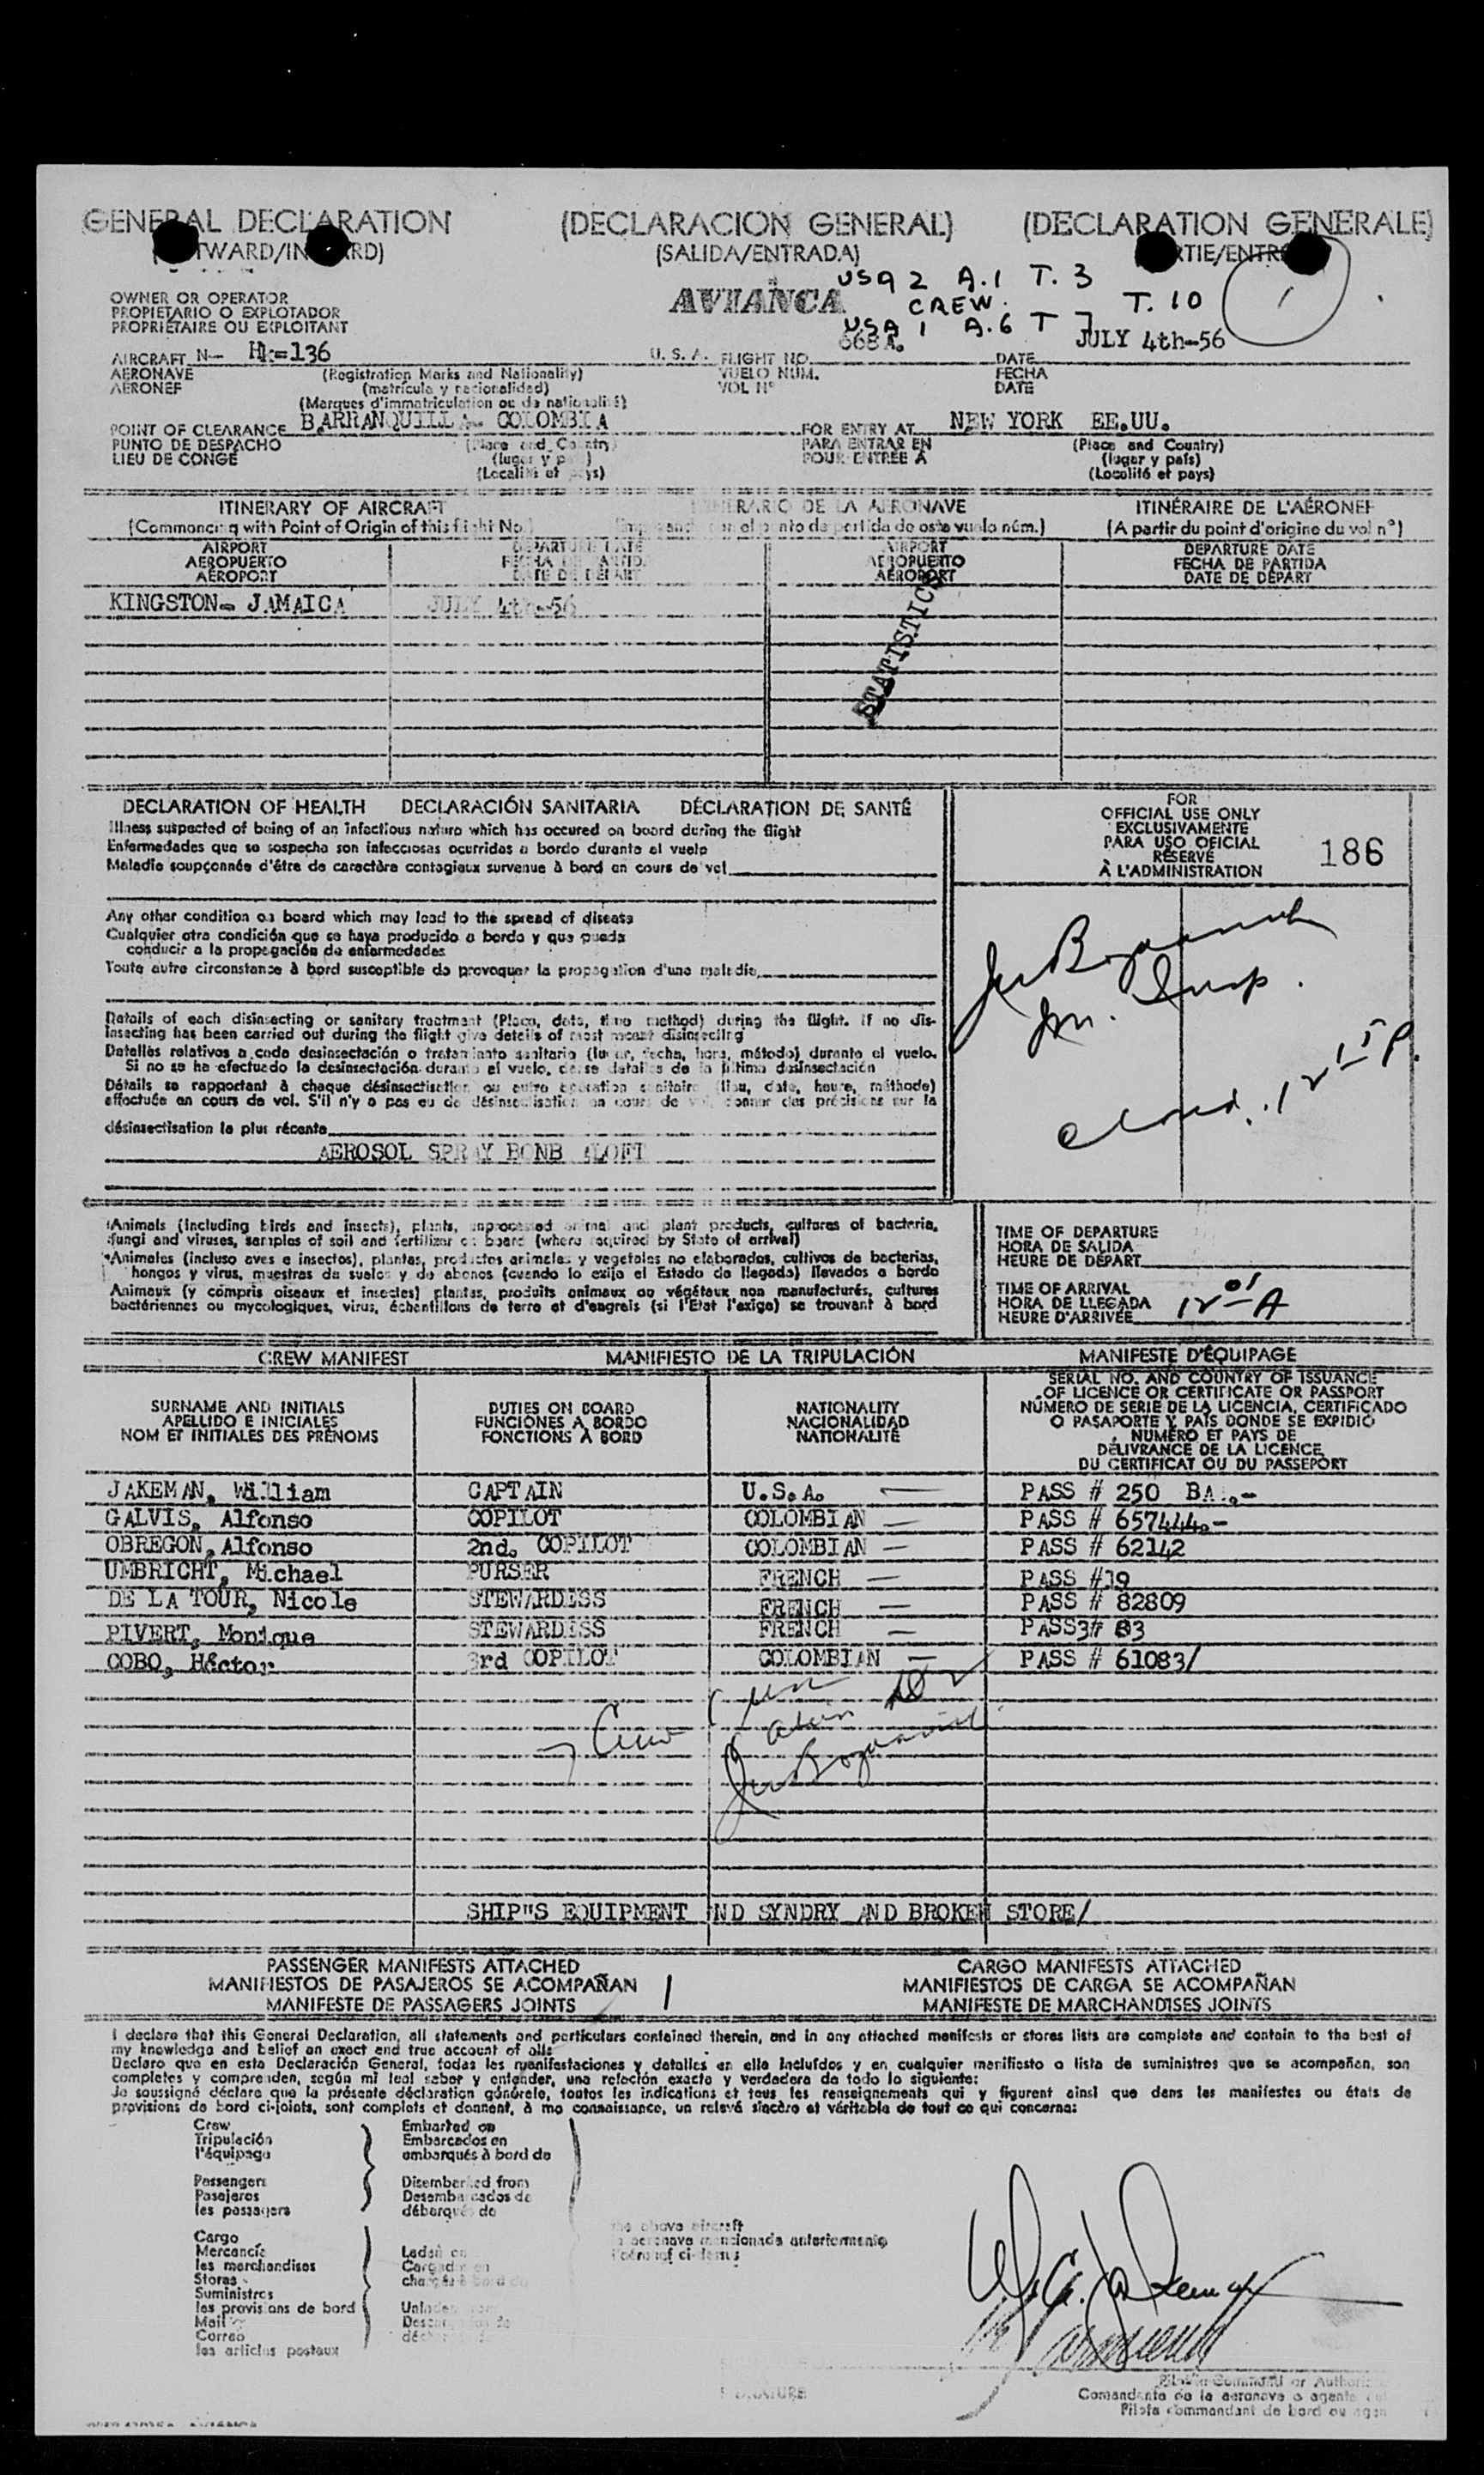 GENERAL DECLARATION (DECLARACION GENERAL) (DECLARATION GENERALE)
(SALIDA/ENTRADA)
USA 2 A.1 T. 3
AVIANCA CREW. T. 10 1
USA 1 A.6 T 7
OWNER OR OPERATOR
PROPIETARIO O EXPLOTADOR
PROPRIÉTAIRE OU EXPLOITANT
AIRCRAFT N- HK=136 U. S. A. FLIGHT NO. 668 A. DATE JULY 4th-56
AERONAVE (Registration Marks and Nationality) VUELO NUM. FECHA
AÉRONEF (matrícula y nacionalidad) VOL Nº DATE
(Marques d'immatriculation ou de nationalité)
POINT OF CLEARANCE BARRANQUILLA- COLOMBIA FOR ENTRY AT NEW YORK EE.UU.
PUNTO DE DESPACHO (Place and Country) PARA ENTRAR EN (Place and Country)
LIEU DE CONGÉ (lugar y país) POUR ENTRÉE A (lugar y país)
(Localité et pays) (Localité et pays)
ITINERARY OF AIRCRAFT ITINERARIO DE LA AERONAVE ITINÉRAIRE DE L'AÉRONEF
(Commencing with Point of Origin of this flight No.) con el punto de partida de este vuelo núm.) (A partir du point d'origine du vol nº)
AIRPORT DEPARTURE DATE AIRPORT DEPARTURE DATE
AEROPUERTO FECHA DE PARTIDA AEROPUERTO FECHA DE PARTIDA
AÉROPORT DATE DE DÉPART AÉROPORT DATE DE DÉPART
KINGSTON- JAMAICA JULY 4th-56
STATISTICS
DECLARATION OF HEALTH DECLARACIÓN SANITARIA DÉCLARATION DE SANTÉ
Illness suspected of being of an infectious nature which has occured on board during the flight
Enfermedades que se sospecha son infecciosas ocurridas a bordo durante el vuelo
Maladie soupçonnée d'être de caractère contagieux survenue à bord en cours de vol
FOR
OFFICIAL USE ONLY
EXCLUSIVAMENTE
PARA USO OFICIAL
RÉSERVÉ
À L'ADMINISTRATION
186
Any other condition on board which may lead to the spread of disease
Cualquier otra condición que se haya producido a bordo y que pueda
conducir a la propagación de enfermedades
Toute autre circonstance à bord susceptible de provoquer la propagation d'une maladie
Details of each disinsecting or sanitary treatment (Place, date, time method) during the flight. If no dis-
insecting has been carried out during the flight give details of most recent disinsecting
Detalles relativos a cada desinsectación o tratamiento sanitario (lugar, fecha, hora, método) durante el vuelo.
Si no se ha efectuado la desinsectación durante el vuelo, dense detalles de la última desinsectación
Détails se rapportant à chaque désinsectisation ou autre opération sanitaire (lieu, date, heure, méthode)
effectuée en cours de vol. S'il n'y a pas eu de désinsectisation en cours de vol, donner des précisions sur la
désinsectisation la plus récente
AEROSOL SPRAY BONB ALOFT
Imm. Insp.
closed. 12 15 P.
Animals (including birds and insects), plants, unprocessed animal and plant products, cultures of bacteria,
fungi and viruses, samples of soil and fertilizer on board (where required by State of arrival)
Animales (incluso aves e insectos), plantas, productos animales y vegetales no elaborados, cultivos de bacterias,
hongos y virus, muestras de suelos y de abonos (cuando lo exija el Estado de llegada) llevados a bordo
Animaux (y compris oiseaux et insectes) plantes, produits animaux ou végétaux non manufacturés, cultures
bactériennes ou mycologiques, virus, échantillons de terre et d'engrais (si l'Etat l'exige) se trouvant à bord
TIME OF DEPARTURE
HORA DE SALIDA
HEURE DE DÉPART
TIME OF ARRIVAL
HORA DE LLEGADA
HEURE D'ARRIVÉE 12 01 A
CREW MANIFEST MANIFIESTO DE LA TRIPULACIÓN MANIFESTE D'ÉQUIPAGE
SURNAME AND INITIALS DUTIES ON BOARD NATIONALITY
APELLIDO E INICIALES FUNCIONES A BORDO NACIONALIDAD
NOM ET INITIALES DES PRÉNOMS FONCTIONS À BORD NATIONALITÉ
SERIAL NO. AND COUNTRY OF ISSUANCE
OF LICENCE OR CERTIFICATE OR PASSPORT
NÚMERO DE SERIE DE LA LICENCIA, CERTIFICADO
O PASAPORTE Y PAÍS DONDE SE EXPIDIÓ
NUMÉRO ET PAYS DE
DÉLIVRANCE DE LA LICENCE
DU CERTIFICAT OU DU PASSEPORT
JAKEMAN, William CAPTAIN U.S.A. PASS # 250 BA..-
GALVIS, Alfonso COPILOT COLOMBIAN PASS # 657444.-
OBREGON, Alfonso 2nd. COPILOT COLOMBIAN PASS # 62142
UMBRICHT, Michael PURSER FRENCH PASS #19
DE LA TOUR, Nicole STEWARDESS FRENCH PASS # 82809
PIVERT, Monique STEWARDESS FRENCH PASS3# 83
COBO, Héctor 3rd COPILOT COLOMBIAN PASS # 61083/
7 Crew
SHIP"S EQUIPMENT AND SYNDRY AND BROKEN STORE/
PASSENGER MANIFESTS ATTACHED CARGO MANIFESTS ATTACHED
MANIFIESTOS DE PASAJEROS SE ACOMPAÑAN 1 MANIFIESTOS DE CARGA SE ACOMPAÑAN
MANIFESTE DE PASSAGERS JOINTS MANIFESTE DE MARCHANDISES JOINTS
I declare that this General Declaration, all statements and particulars contained therein, and in any attached manifests or stores lists are complete and contain to the best of
my knowledge and belief an exact and true account of all:
Declaro que en esta Declaración General, todas las manifestaciones y detalles en ella incluídos y en cualquier manifiesto o lista de suministros que se acompañan, son
completos y comprenden, según mi leal saber y entender, una relación exacta y verdadera de todo lo siguiente:
Je soussigné déclare que la présente déclaration générale, toutes les indications et tous les renseignements qui y figurent ainsi que dans les manifestes ou états de
provisions de bord ci-joints, sont complets et donnent, à ma connaissance, un relevé sincère et véritable de tout ce qui concerne:
Crew Embarked on
Tripulación Embarcados en
l'équipage embarqués à bord de
Passengers Disembarked from
Pasajeros Desembarcados de
les passagers débarqués de
the above aircraft
la aeronave mencionada anteriormente
l'aéronef ci-dessus
Cargo
Mercancía Laden on
les marchandises Cargado en
Stores
Suministros
les provisions de bord
Mail
Correo
les articles postaux
W. G. Jakeman
SIGNATURE
Pilot in Command or
Comandante de la aeronave o agente
Pilote commandant de bord ou agent